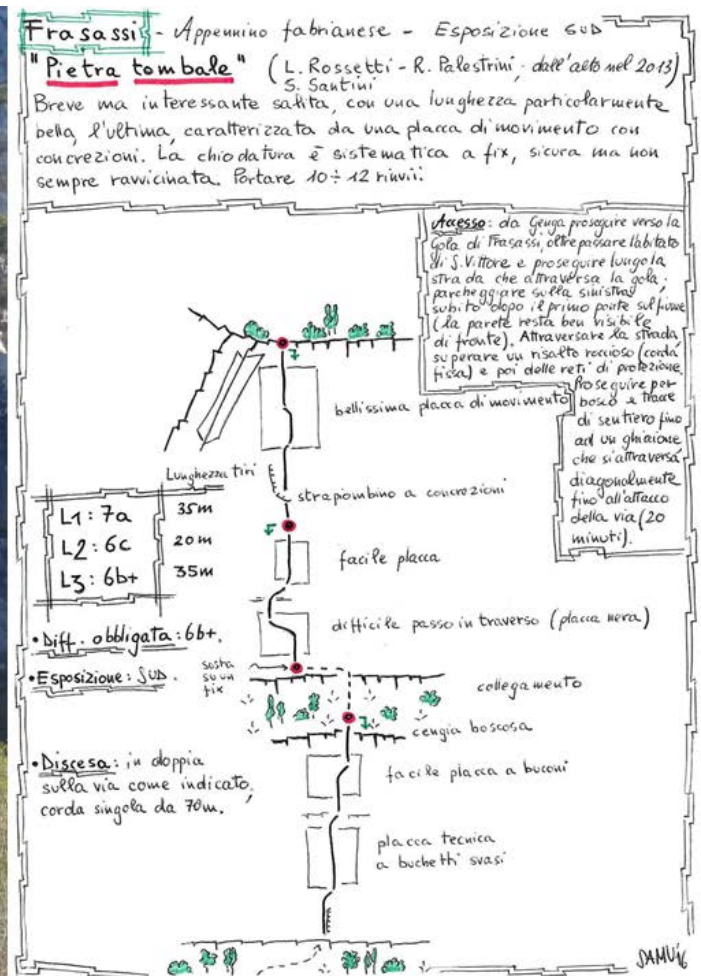 Frasassi - Appennino fabrianese - Esposizione SUD
"Pietra tombale" (L. Rossetti - R. Palestrini - dall'alto nel 2013)
S. Santini
Breve ma interessante salita, con una lunghezza particolarmente
bella, l'ultima, caratterizzata da una placca di movimento con
concrezioni. La chiodatura è sistematica a fix, sicura ma non
sempre ravvicinata. Portare 10÷12 rinvii.
Accesso: da Genga proseguire verso la
Gola di Frasassi, oltrepassare l'abitato
di S. Vittore e proseguire lungo la
strada che attraversa la gola;
parcheggiare sulla sinistra
subito dopo il primo ponte sul fiume
(la parete resta ben visibile
di fronte). Attraversare la strada,
superare un risalto roccioso (corda
fissa) e poi delle reti di protezione.
Proseguire per
bosco e tracce
di sentiero fino
ad un ghiaione
che si attraversa
diagonalmente
fino all'attacco
della via (20
minuti).
bellissima placca di movimento
Lunghezza tiri
strapiombino a concrezioni
L1: 7a 35m
L2: 6c 20m
L3: 6b+ 35m
facile placca
difficile passo in traverso (placca nera)
• Diff. obbligata: 6b+.
• Esposizione: SUD.
sosta
su un
fix
collegamento
cengia boscosa
• Discesa: in doppia
sulla via come indicato,
corda singola da 70m.
facile placca a buconi
placca tecnica
a buchetti svasi
SAMU16